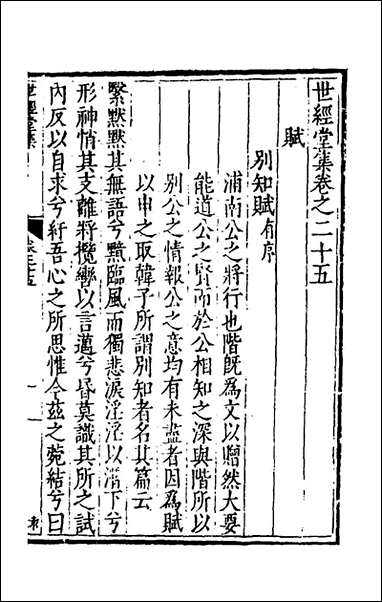 世經堂集卷之二十五
賦
別知賦有序
浦南公之將行也階既為文以贈然大要
能道公之賢而於公相知之深與階所以
別公之情報公之意均有未盡者因為賦
以申之取韓子所謂別知者名其篇云
繄黙黙其無語兮黯臨風而獨悲淚淫淫以濟下兮
形神悄其支離將攬轡以言邁兮昏莫識其所之試
內反以自求兮紆吾心之所思惟今茲之菀結兮曰
世經堂集